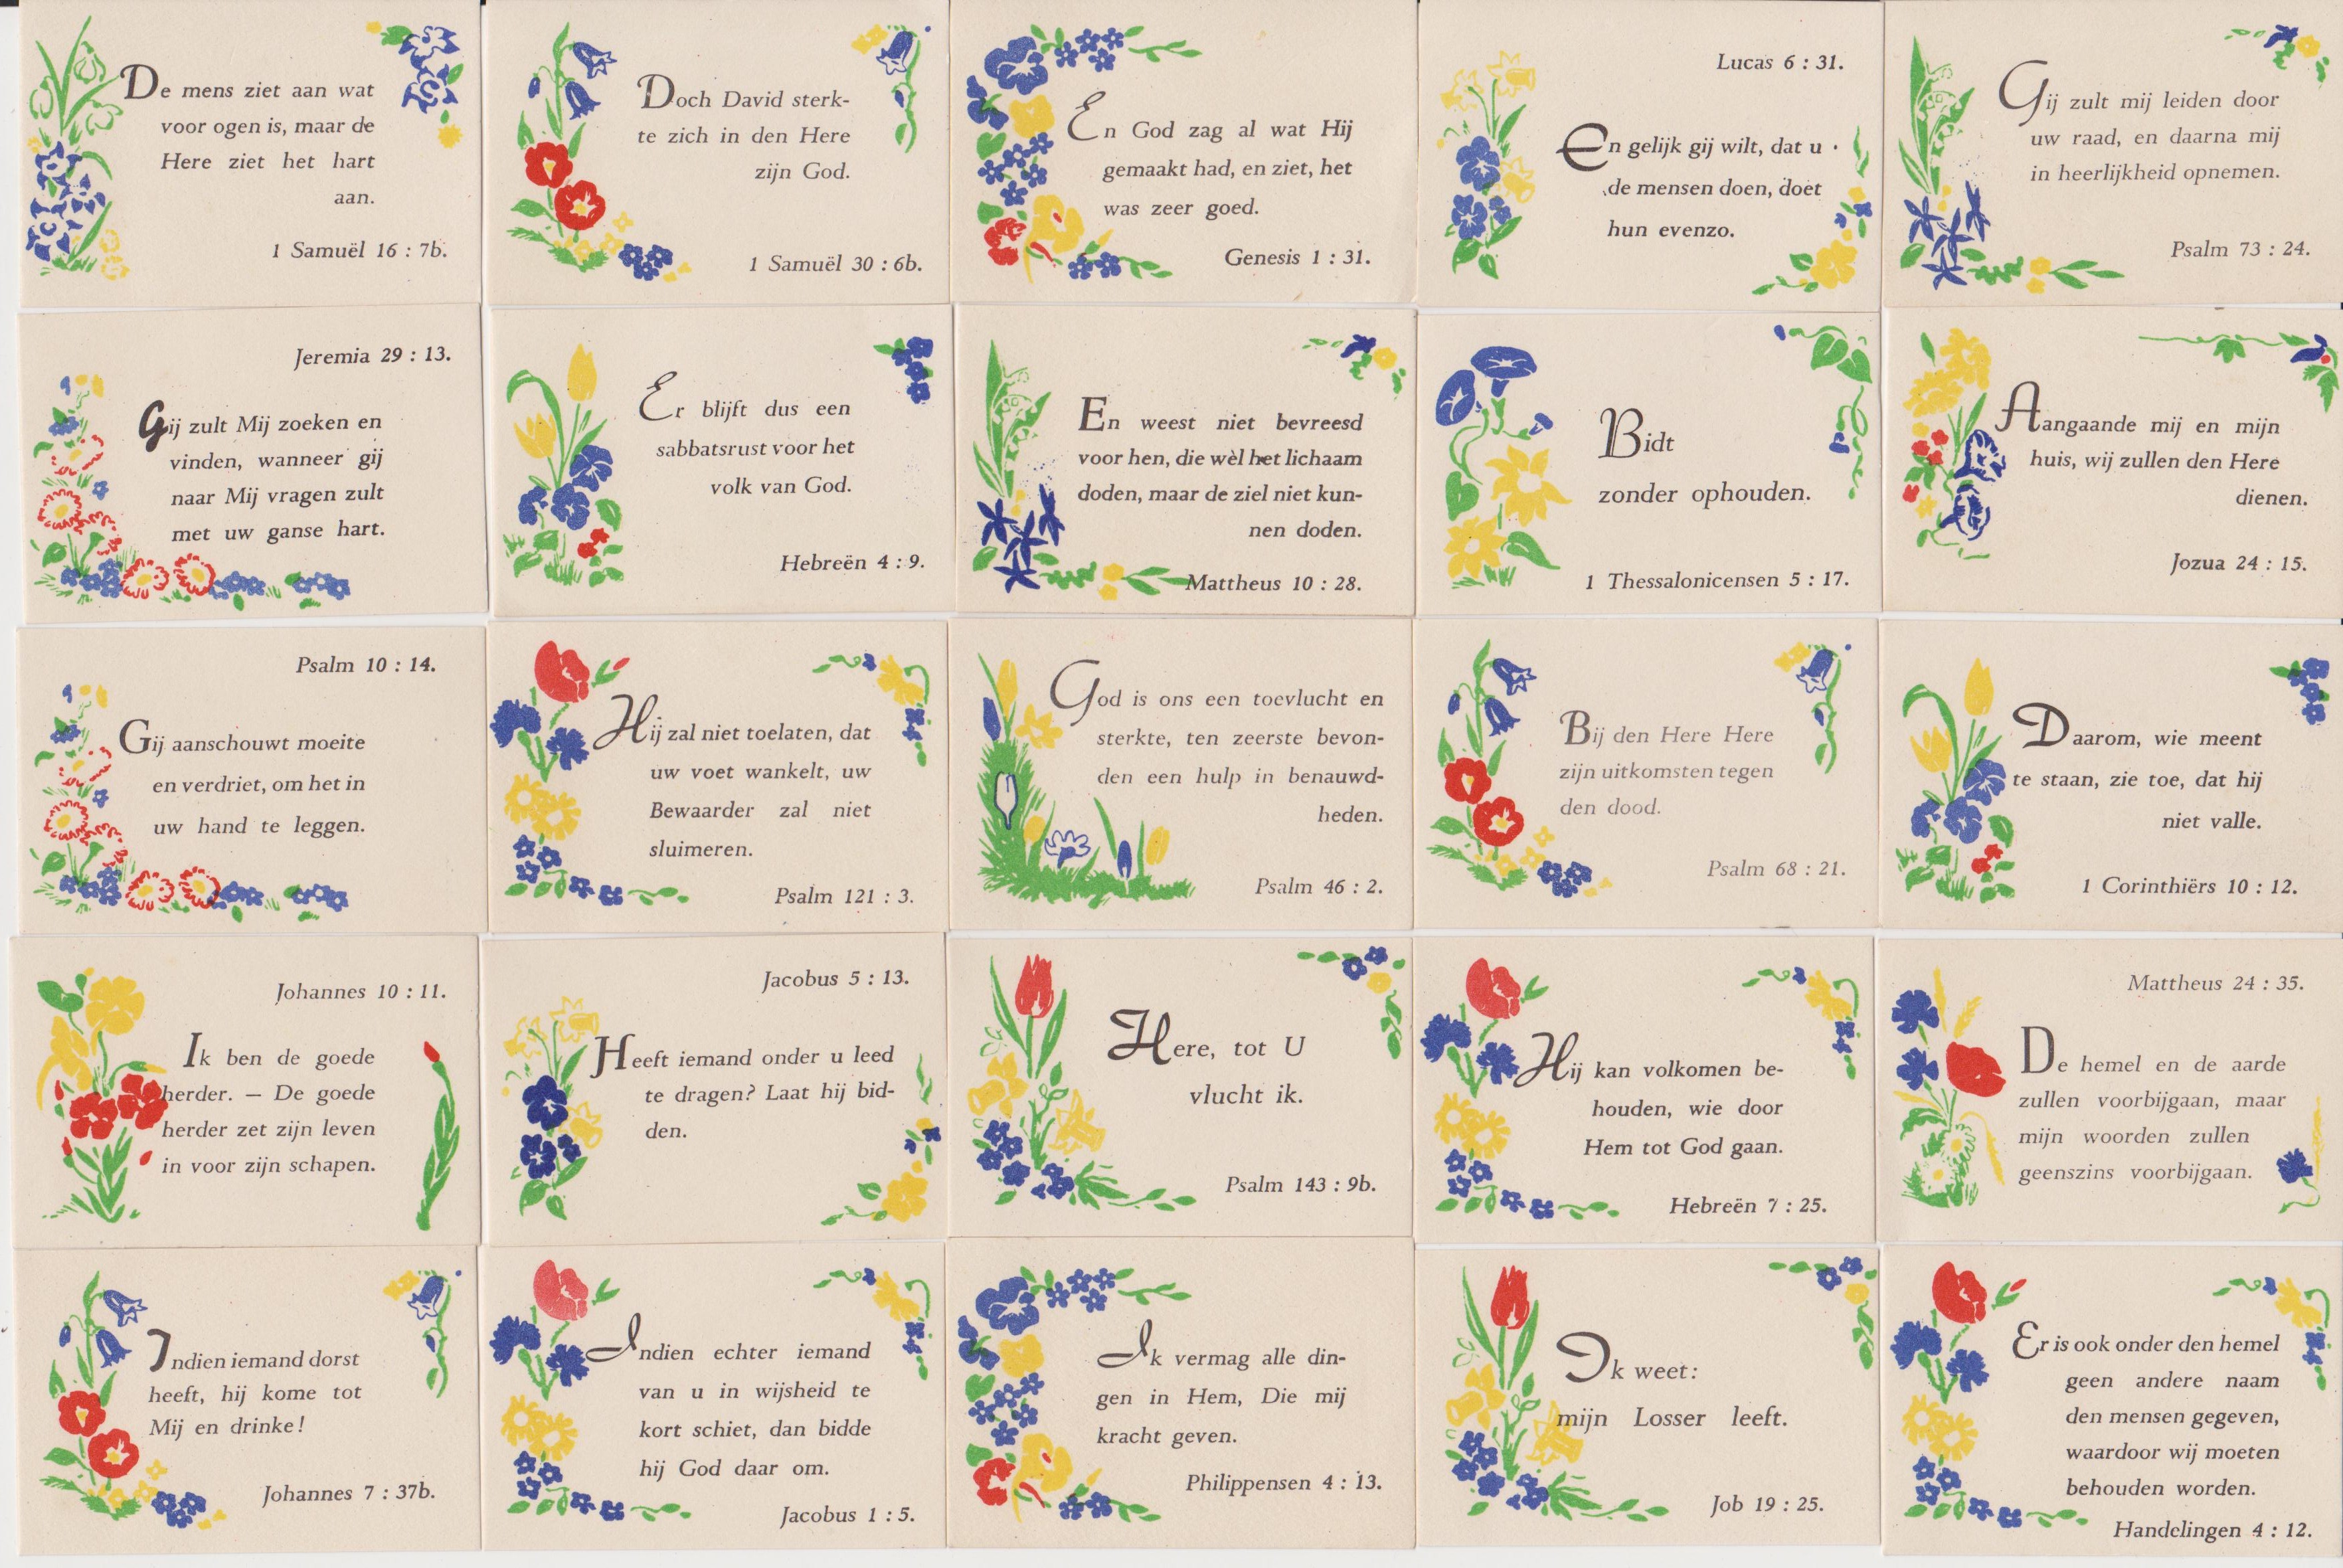 De mens ziet aan wat
voor ogen is, maar de
Here ziet het hart
aan.
1 Samuël 16 : 7b.
Doch David sterk-
te zich in den Here
zijn God.
1 Samuël 30 : 6b.
En God zag al wat Hij
gemaakt had, en ziet, het
was zeer goed.
Genesis 1 : 31.
Lucas 6 : 31.
En gelijk gij wilt, dat u
de mensen doen, doet
hun evenzo.
Gij zult mij leiden door
uw raad, en daarna mij
in heerlijkheid opnemen.
Psalm 73 : 24.
Jeremia 29 : 13.
Gij zult Mij zoeken en
vinden, wanneer gij
naar Mij vragen zult
met uw ganse hart.
Er blijft dus een
sabbatsrust voor het
volk van God.
Hebreën 4 : 9.
En weest niet bevreesd
voor hen, die wèl het lichaam
doden, maar de ziel niet kun-
nen doden.
Mattheus 10 : 28.
Bidt
zonder ophouden.
1 Thessalonicensen 5 : 17.
Aangaande mij en mijn
huis, wij zullen den Here
dienen.
Jozua 24 : 15.
Psalm 10 : 14.
Gij aanschouwt moeite
en verdriet, om het in
uw hand te leggen.
Hij zal niet toelaten, dat
uw voet wankelt, uw
Bewaarder zal niet
sluimeren.
Psalm 121 : 3.
God is ons een toevlucht en
sterkte, ten zeerste bevon-
den een hulp in benauwd-
heden.
Psalm 46 : 2.
Bij den Here Here
zijn uitkomsten tegen
den dood.
Psalm 68 : 21.
Daarom, wie meent
te staan, zie toe, dat hij
niet valle.
1 Corinthiërs 10 : 12.
Johannes 10 : 11.
Ik ben de goede
herder. — De goede
herder zet zijn leven
in voor zijn schapen.
Jacobus 5 : 13.
Heeft iemand onder u leed
te dragen? Laat hij bid-
den.
Here, tot U
vlucht ik.
Psalm 143 : 9b.
Hij kan volkomen be-
houden, wie door
Hem tot God gaan.
Hebreën 7 : 25.
Mattheus 24 : 35.
De hemel en de aarde
zullen voorbijgaan, maar
mijn woorden zullen
geenszins voorbijgaan.
Indien iemand dorst
heeft, hij kome tot
Mij en drinke!
Johannes 7 : 37b.
Indien echter iemand
van u in wijsheid te
kort schiet, dan bidde
hij God daar om.
Jacobus 1 : 5.
Ik vermag alle din-
gen in Hem, Die mij
kracht geven.
Philippensen 4 : 13.
Ik weet:
mijn Losser leeft.
Job 19 : 25.
Er is ook onder den hemel
geen andere naam
den mensen gegeven,
waardoor wij moeten
behouden worden.
Handelingen 4 : 12.